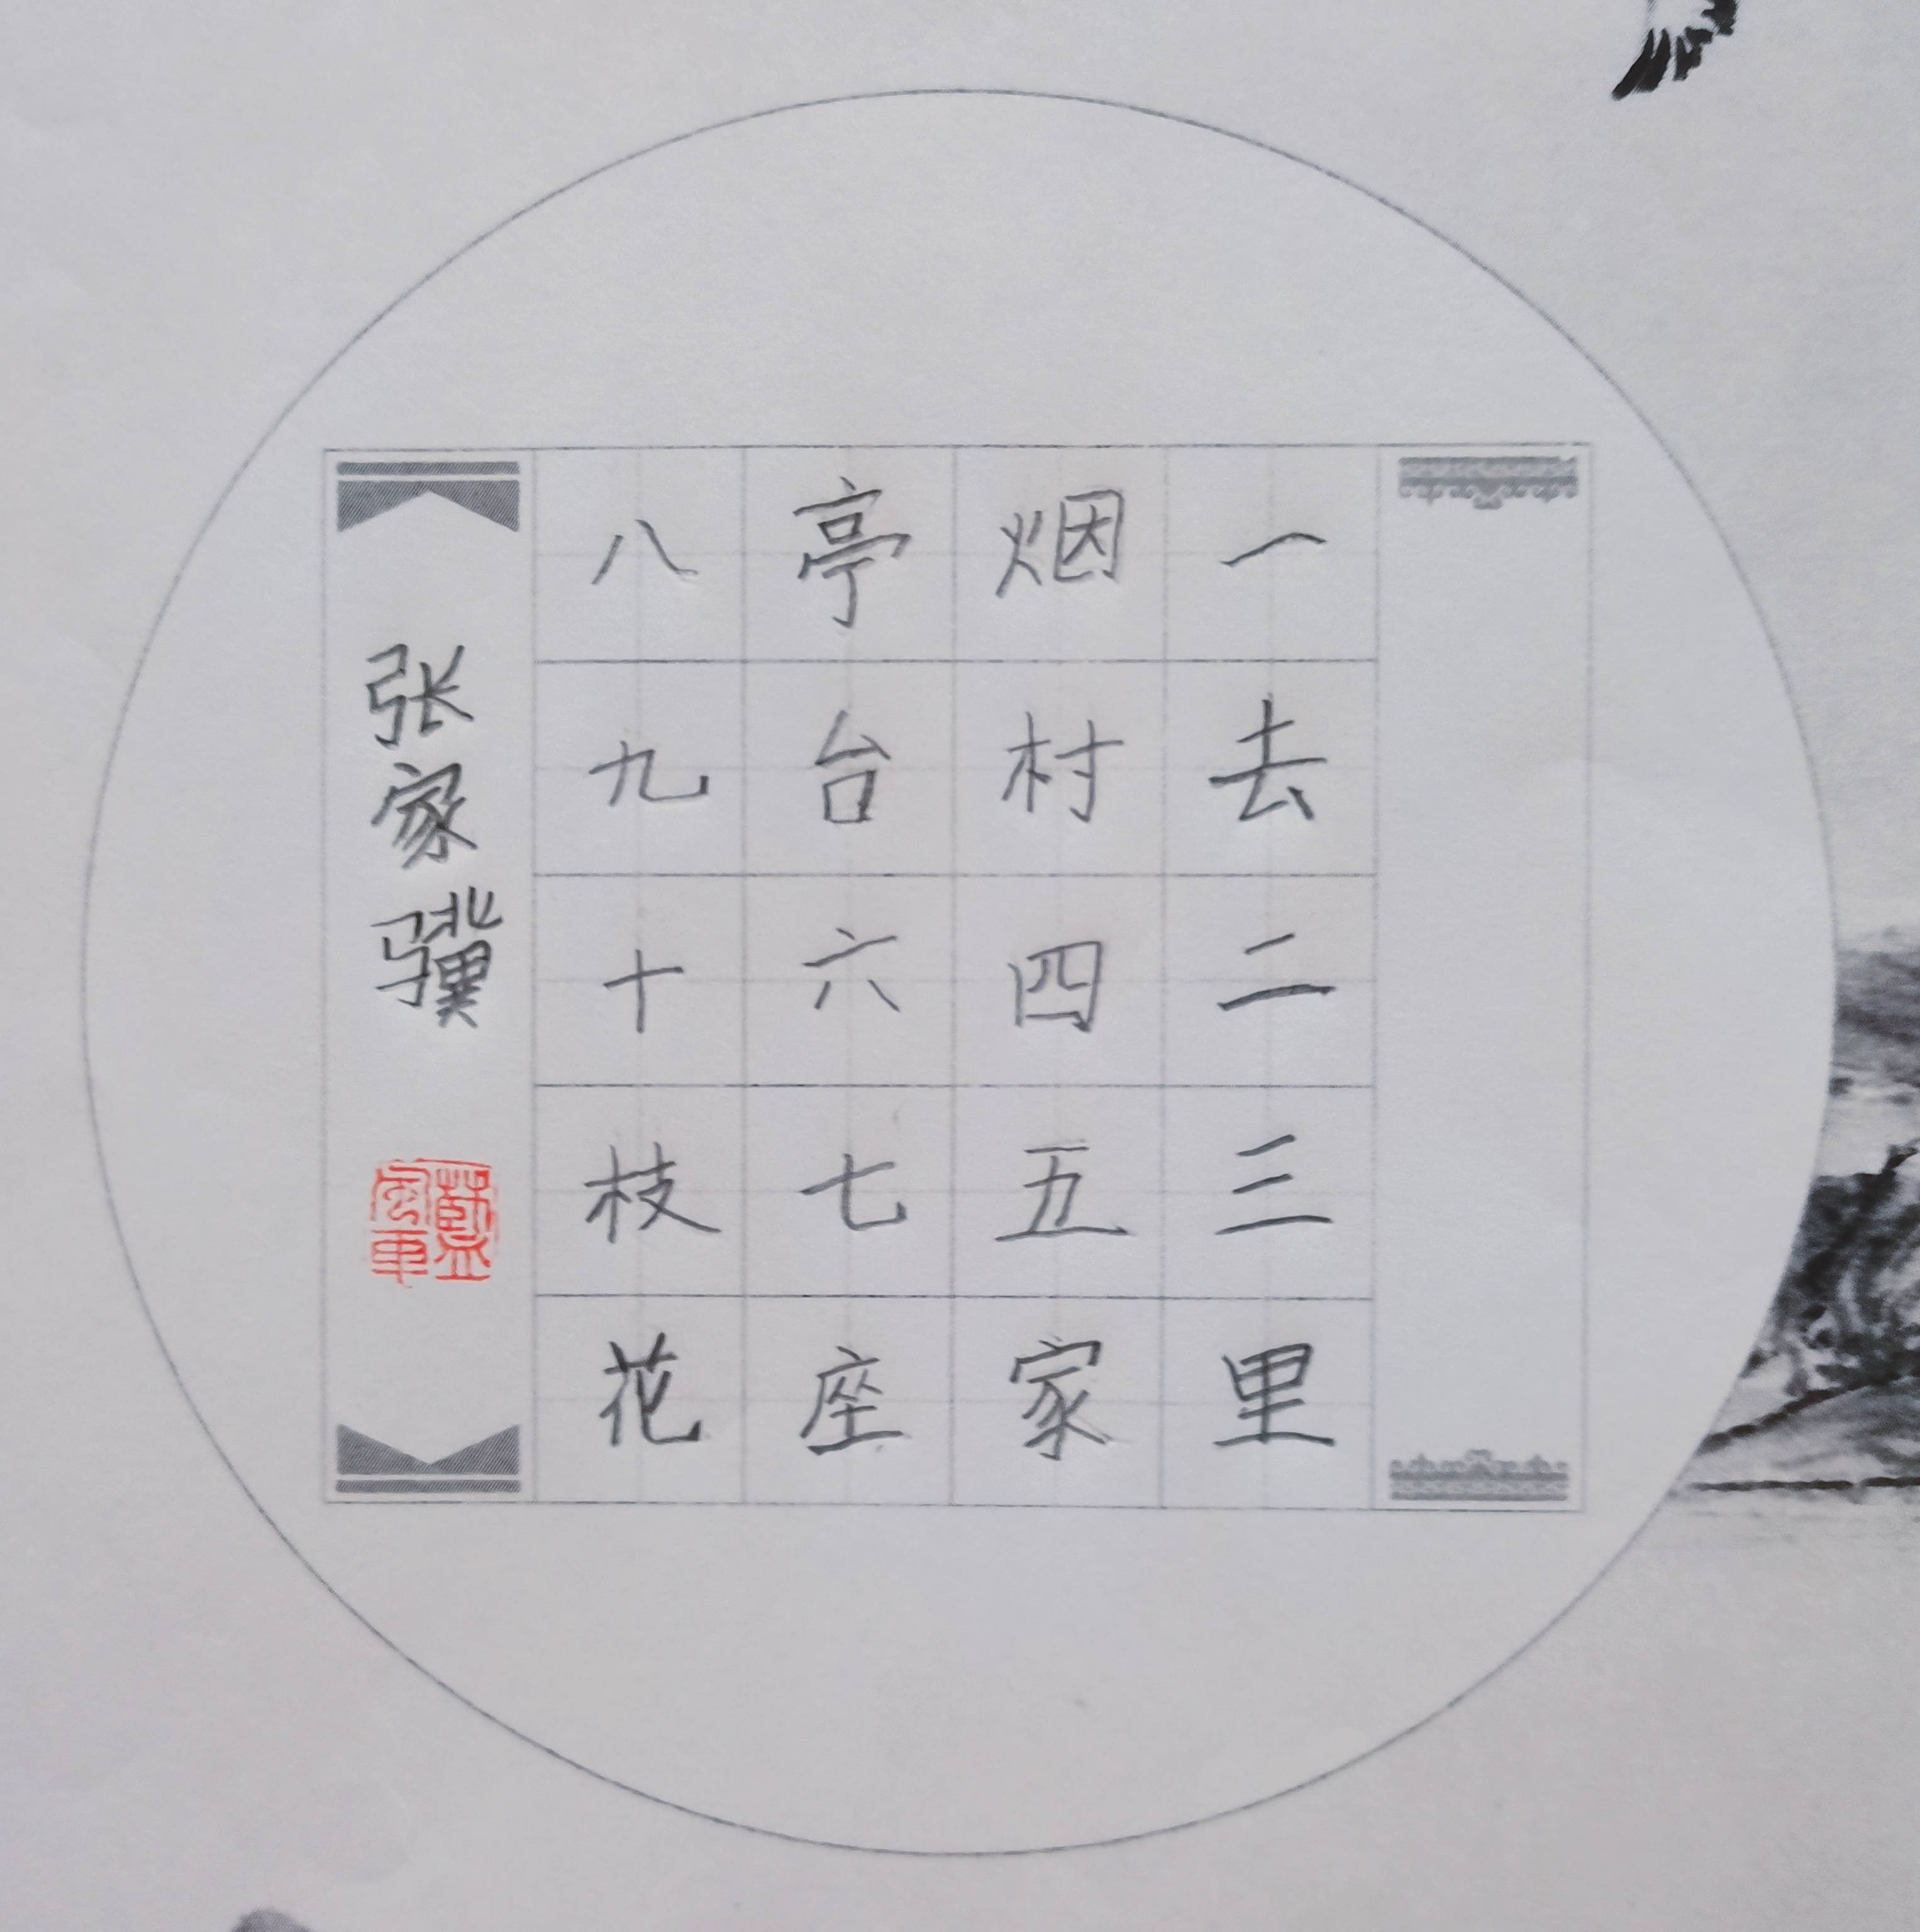 一去二三里
烟村四五家
亭台六七座
八九十枝花
张家骥